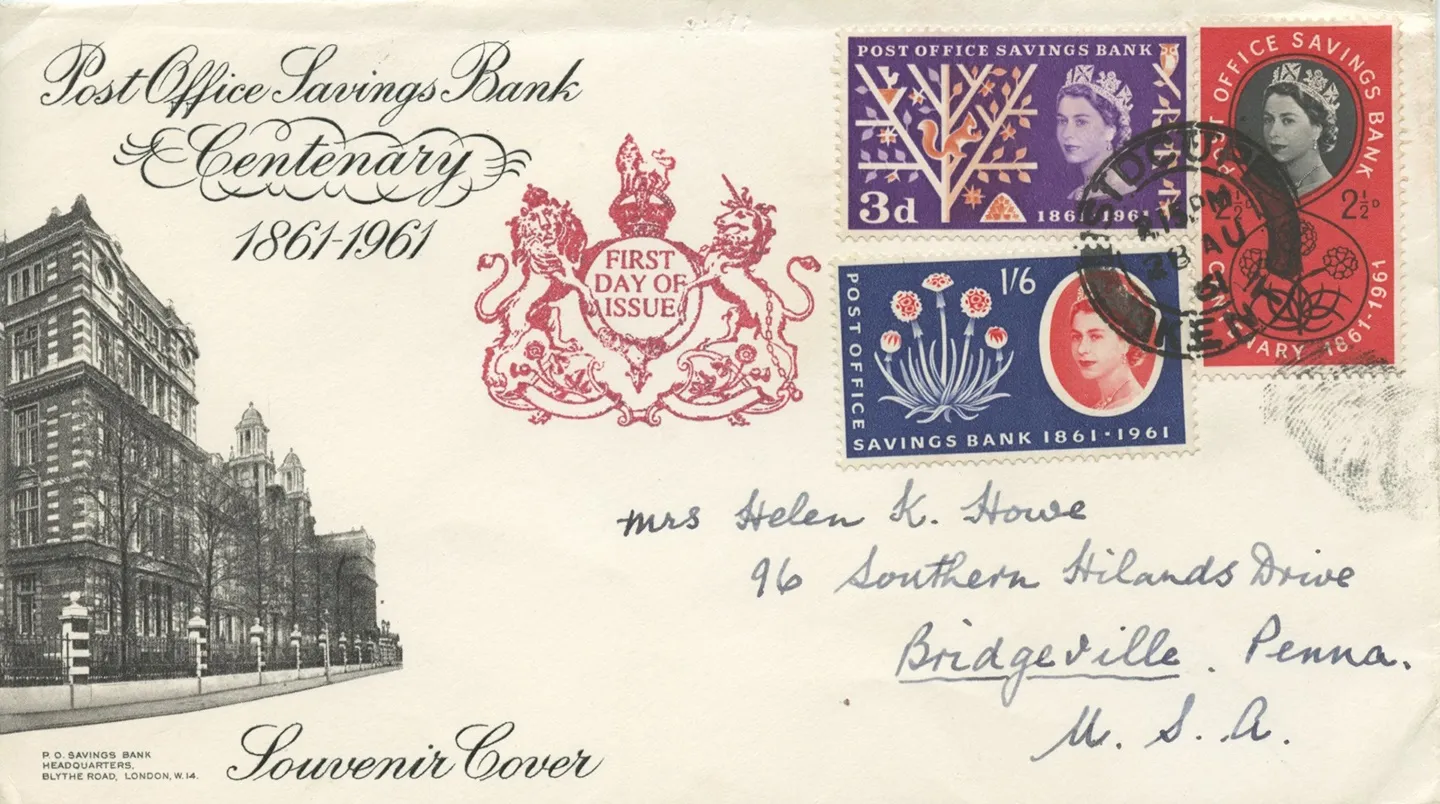 Post Office Savings Bank
Centenary
1861-1961
FIRST
DAY OF
ISSUE
POST OFFICE SAVINGS BANK
3d
1861-1961
POST OFFICE SAVINGS BANK
2½D
2½D
1861-1961
1/6
POST OFFICE
SAVINGS BANK 1861-1961
PM
28 AU
61
KENT
Mrs Helen K. Howe
96 Southern Hilands Drive
Bridgeville. Penna.
U. S. A.
P. O. SAVINGS BANK
HEADQUARTERS,
BLYTHE ROAD, LONDON, W.14.
Souvenir Cover